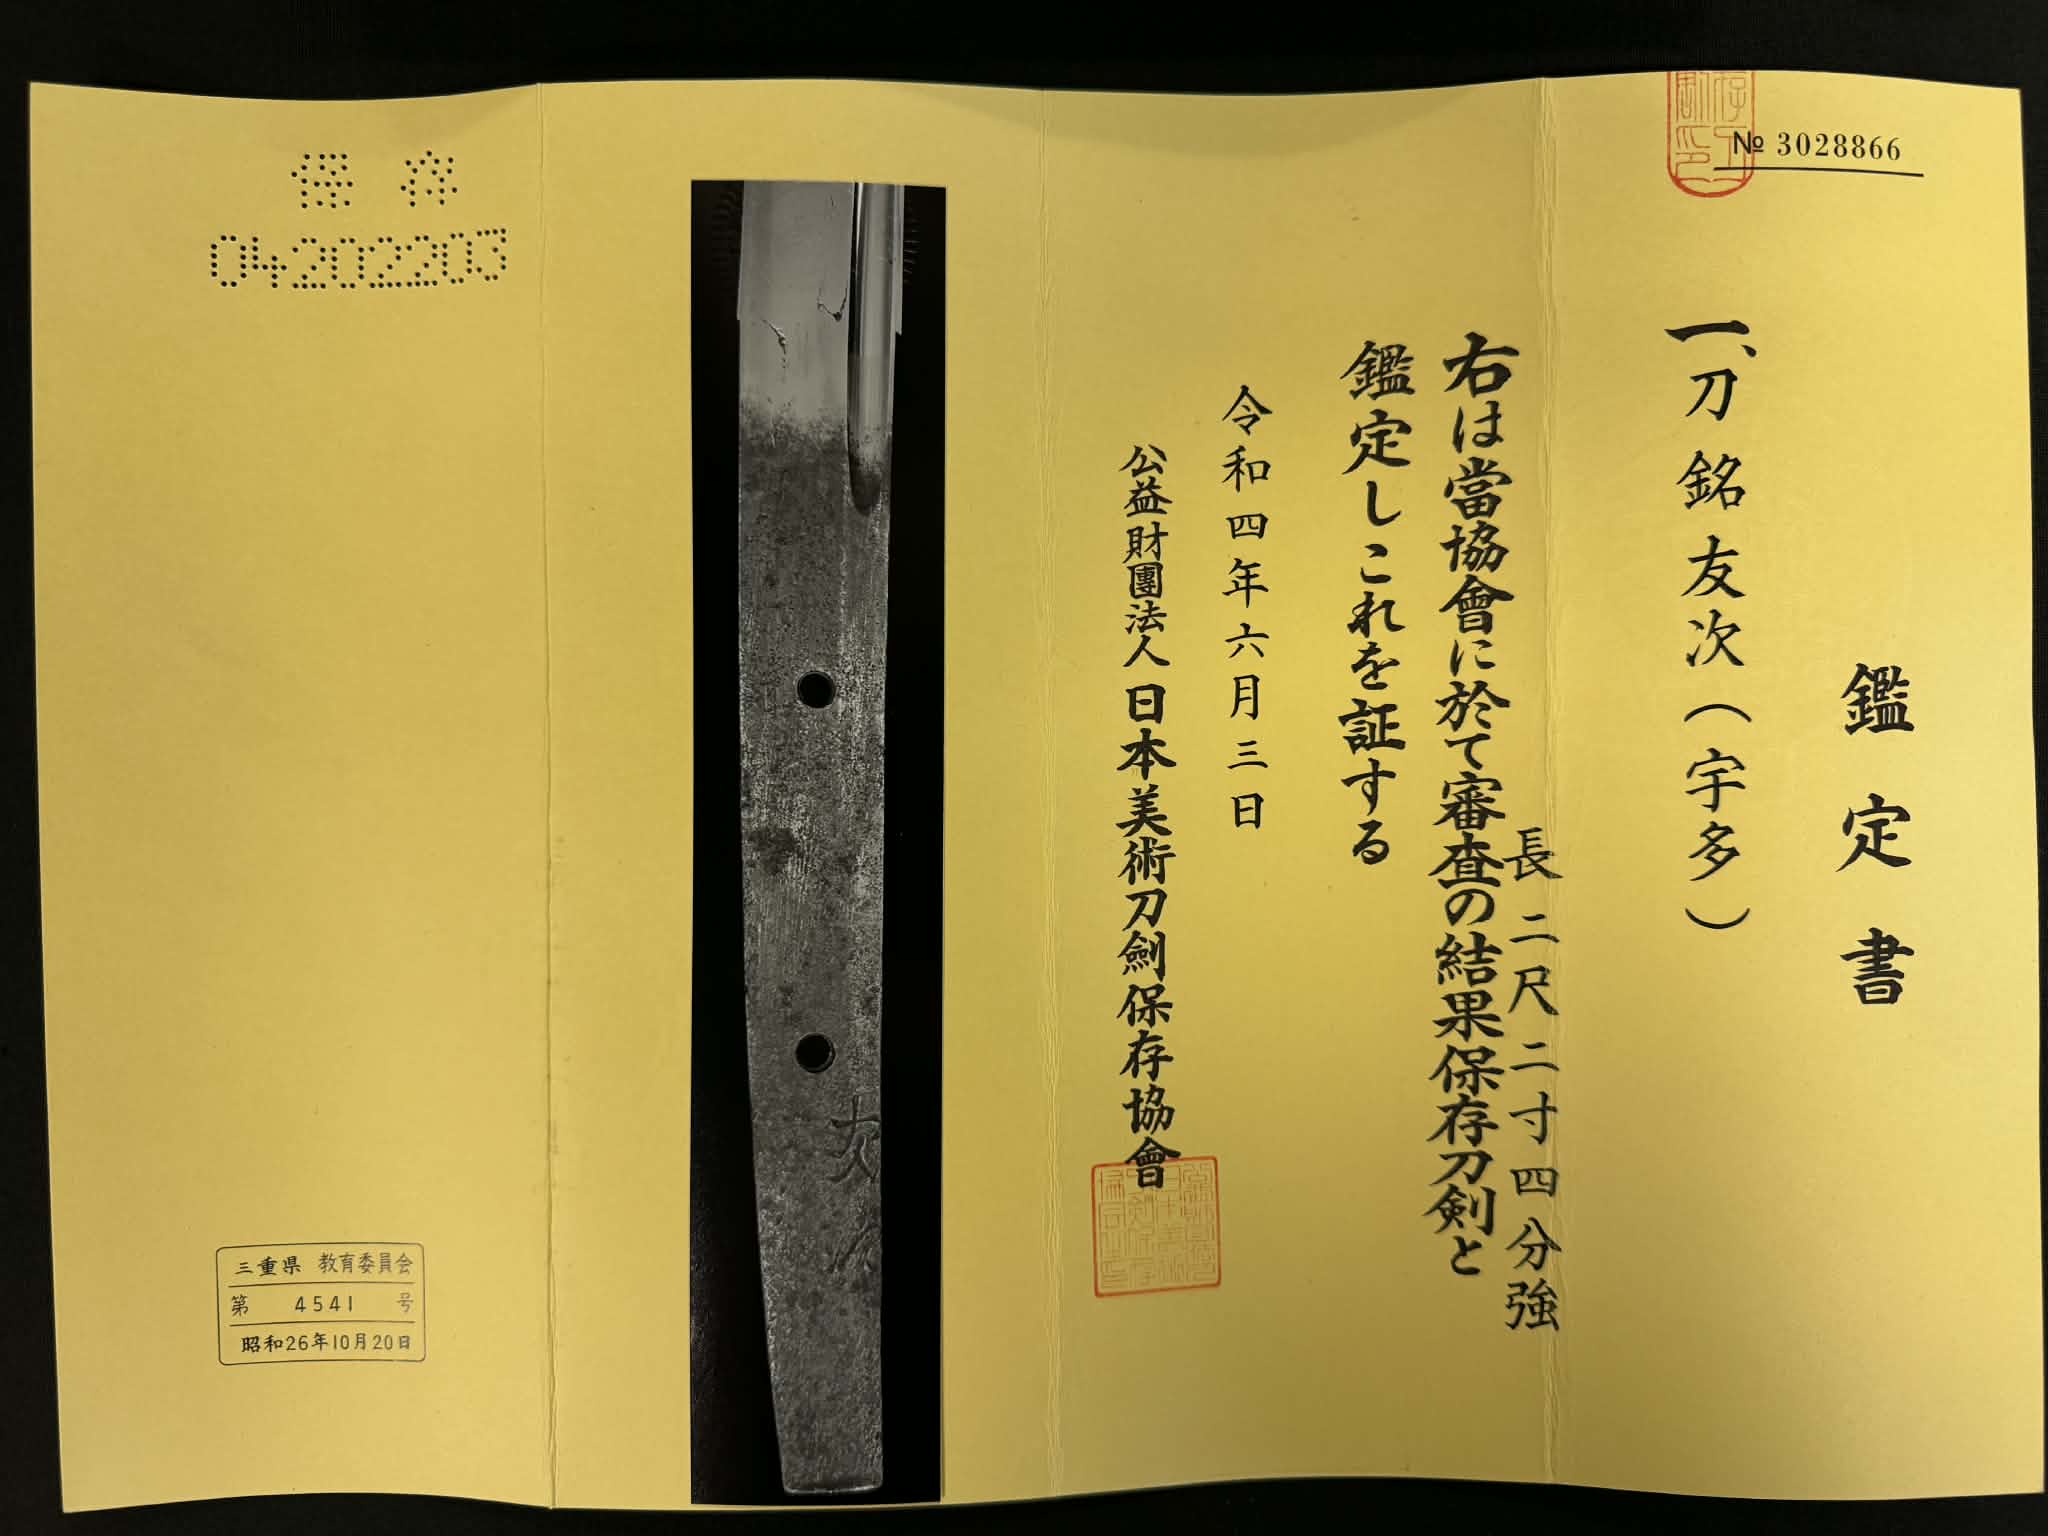 № 3028866
鑑定書
一、刀 銘 友次（宇多）
長 二尺二寸四分強
右は當協會に於て審査の結果保存刀剣と
鑑定しこれを証する
令和四年六月三日
公益財團法人 日本美術刀劍保存協會
友次
保存
04202203
三重県 教育委員会
第 4541 号
昭和26年10月20日